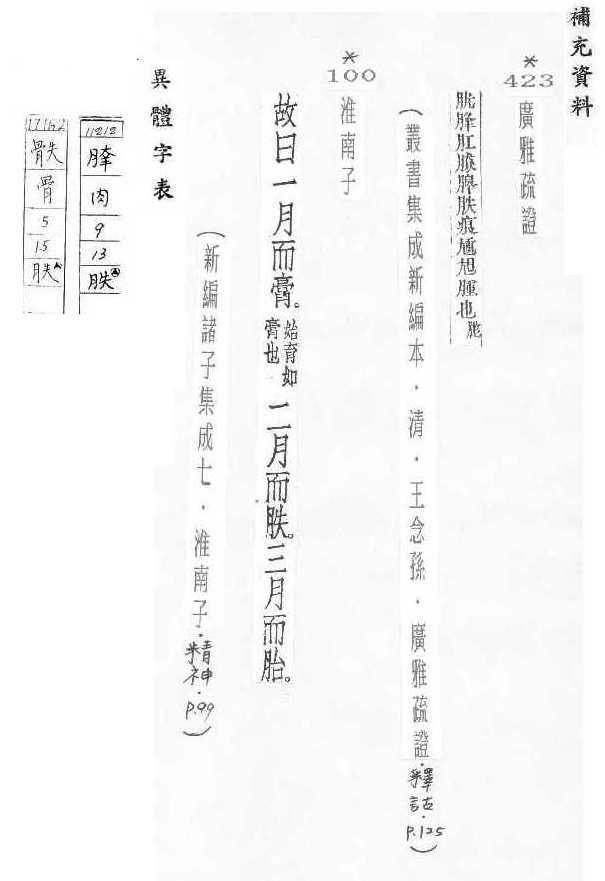 補充資料
*423 廣雅疏證
胅痕尰尳腫也
（叢書集成新編本．清．王念孫．廣雅疏證．釋詁．P.125）
*100 淮南子
故曰一月而膏。始育如膏也二月而胅。三月而胎。
（新編諸子集成七．淮南子．精神．P.99）
異體字表
11212
肉
9
13
胅
骨
5
15
胅